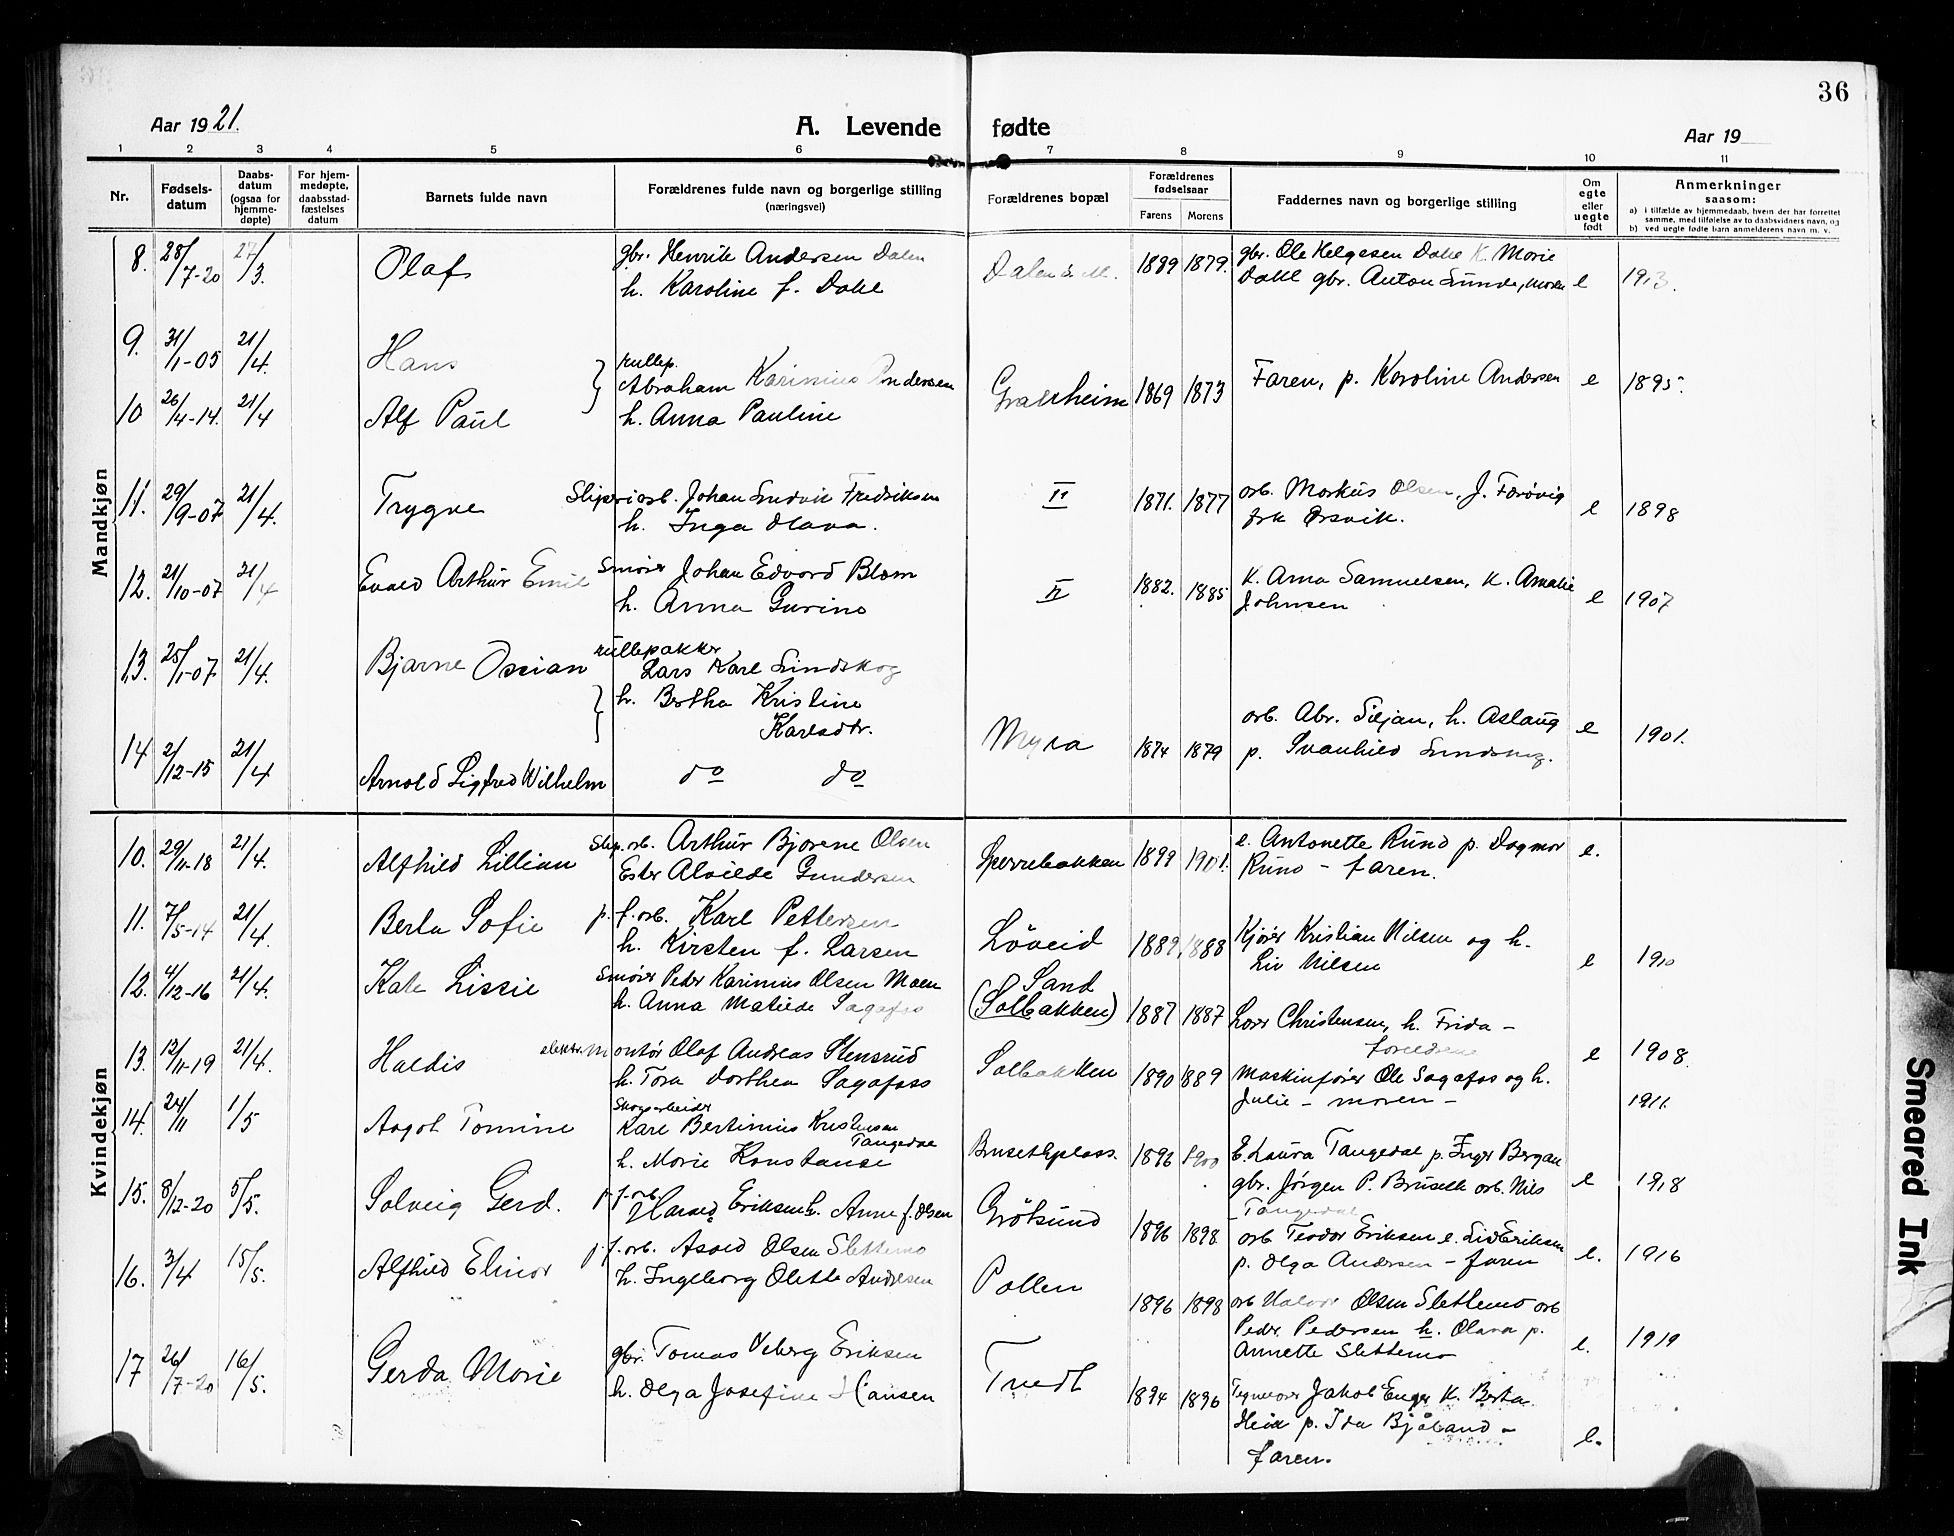 36
Aar 1921.
A. Levende fødte
Aar 19
1 2 3 4 5 6 7 8 9 10 11
Nr.
Fødsels-
datum
Daabs-
datum
(ogsaa for
hjemme-
døpte)
For hjem-
medøpte,
daabsstad-
fæstelses
datum
Barnets fulde navn
Forældrenes fulde navn og borgerlige stilling
(næringsvei)
Forældrenes bopæl
Forældrenes
fødselsaar
Farens Morens
Faddernes navn og borgerlige stilling
Om
egte
eller
uegte
født
Anmerkninger
saasom:
a) i tilfælde av hjemmedaab, hvem der har forrettet
samme, med tilføielse av to daabsvidners navn, og
b) ved uegte fødte barn anmelderens navn m. v.
Mandkjøn
8. 28/7-20 27/3. Olaf gbr. Henrik Andersen Dalen
h. Karoline f. Dahl
1889 1879. gbr. Ole Helgesen Dahl K. Marie
Dahl gbr. Anton Sunde, moren e 1913.
9. 31/1-05 21/4. Hans
rullep.
Abraham Karinius Andersen
10 26/4-14. 21/4 Alf Paul h. Anna Pauline
Graaheim 1869 1873 Faren, p. Karoline Andersen e 1895.
11. 29/9-07 21/4. Trygve Sliperiarb. Johan Ludvik Fredriksen
h. Inga Olava.
" 1871. 1877 arb. Markus Olsen, J. Farøvig
frk Ørsvik. e 1898
12. 21/10-07 21/4 Evald Arthur Emil Smører Johan Edvard Blom
h. Anna Gurine
" 1882. 1885 K. Anna Samuelsen, K. Amalie
Johnsen e 1907
13. 25/1-07 21/4. Bjarne Ossian rullepakker
Lars Karl Lindskog
h. Bertha Kristine
Karlsdtr.
14 2/12-15 21/4 Arnold Sigfred Wilhelm do do
Myra 1874 1879 arb. Abr. Siljan, h. Aslaug
p. Svanhild Lindskog. e 1901.
Kvindekjøn
10. 29/11-18 21/4. Alfhild Lillian Slip.arb. Arthur Bjarne Olsen
Ester Alvilde Gundersen
Sperrebakken 1899 1901. e. Antonette Rund p. Dagmar
Rund - faren. e.
11. 7/5-14 21/4. Berta Sofie p. f. arb. Karl Pettersen
h. Kirsten f. Larsen
Löveid 1889. 1888 Kjører Kristian Nilsen og h.
Liv Nilsen e 1910
12. 4/12-16 21/4. Kate Lissie Smører Peder Karinius Olsen Moen
h. Anna Matilde Sagafos
Sand
(Solbakken) 1887 1887 Lars Christensen, h. Frida -
forældrene e 1908.
13. 13/11-19 21/4. Haldis elektr. montør Olaf Andreas Stensrud
h. Tora Dorthea Sagafoss
Solbakken 1890 1889 Maskinfører Ole Sagafos og h.
Julie - moren - 1911.
14. 24/11 1/5 Aagot Tomine
Skogsarbeider
Karl Bertinius Kristensen
Tangedal
h. Marie Konstanse
Brusethplass. 1896 1900 E. Laura Tangedal p. Inger Bergan
gbr. Jørgen P. Bruseth arb. Nils
Tangedal e 1918
15. 8/12-20 5/5. Solveig Gerd. p. f. arb.
Harald Eriksen h. Anne f. Olsen
Grötsund 1896 1898 arb Teodor Eriksen e. Lid Eriksen
p. Olga Andersen - faren e. 1916
16. 3/4 15/5. Alfhild Elinor p. f. arb. Asold Olsen Slettemo
h. Ingeborg Olette Andresen
Pollen 1896 1898 arb Halvor Olsen Slettemo arb
Peder Pedersen h. Olava p.
Annette Slettemo e. 1919
17 26/7-20 16/5. Gerda Marie gbr. Tomas Veberg Eriksen
h. Olga Josefine Hansen
Tvedt 1894 1896 Jakob Enger K. Berta
Heia p. Ida Bjåland -
faren. e.
Smeared Ink